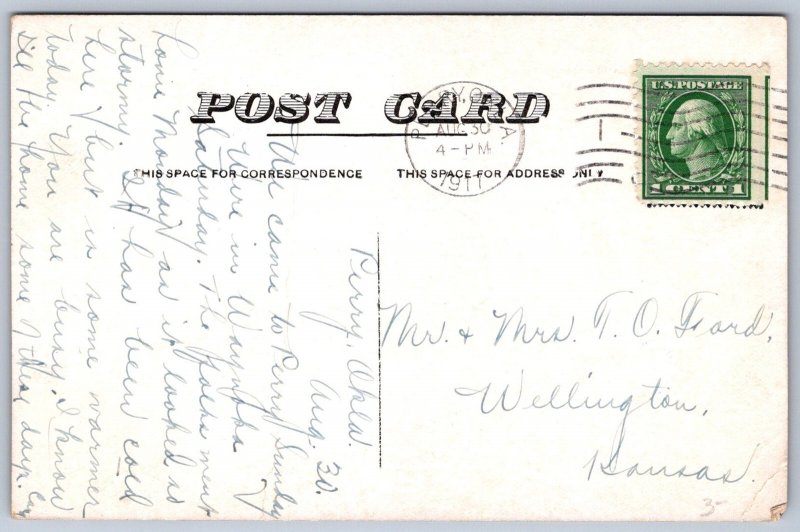 POST CARD
THIS SPACE FOR CORRESPONDENCE
THIS SPACE FOR ADDRESS ONLY
PERRY, OKLA.
AUG 30
4-PM
1911
U.S. POSTAGE
1 CENT 1
Perry, Okla.
Aug. 30.
We came to Perry Sunday
Were in Waynoka
Saturday. The folks went
home Monday as it looked so
stormy. It has been cold
here, but is some warmer
today. You are busy, I know
Tell the home some of these days.
Mr. & Mrs. T. O. Ford.
Wellington,
Kansas.
3-